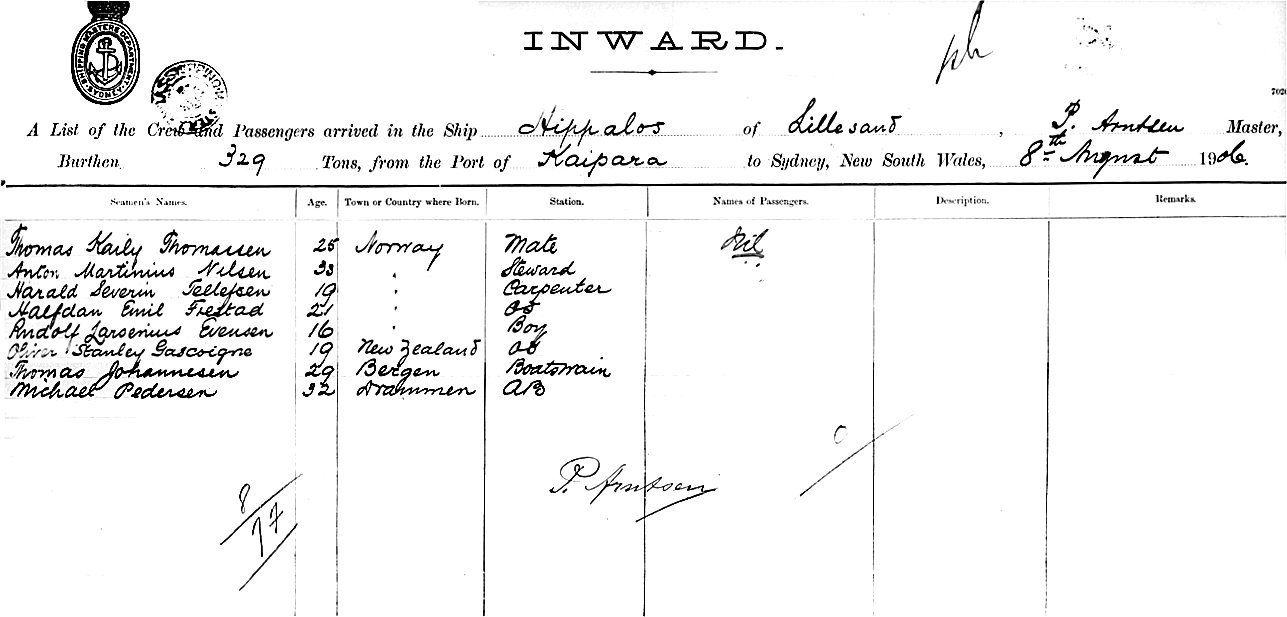 SHIPPING MASTERS DEPARTMENT SYDNEY
INWARD.
A List of the Crew and Passengers arrived in the Ship Hippalos of Lillesand, P. Arntsen Master,
Burthen 329 Tons, from the Port of Kaipara to Sydney, New South Wales, 8th August 1906.
Seamen's Names. Age. Town or Country where Born. Station. Names of Passengers. Description. Remarks.
Thomas Thomassen 25 Norway Mate Nil
Anton Martinius Nilsen 33 " Steward
Harald Severin Tellefsen 19 " Carpenter
Halfdan Emil Frestad 21 " OS
Rudolf Larsenius Evensen 16 " Boy
Oliver Stanley Gascoigne 19 New Zealand OS
Thomas Johannesen 29 Bergen Boatswain
Michael Pedersen 32 Drammen AB
0
P. Arntsen
8